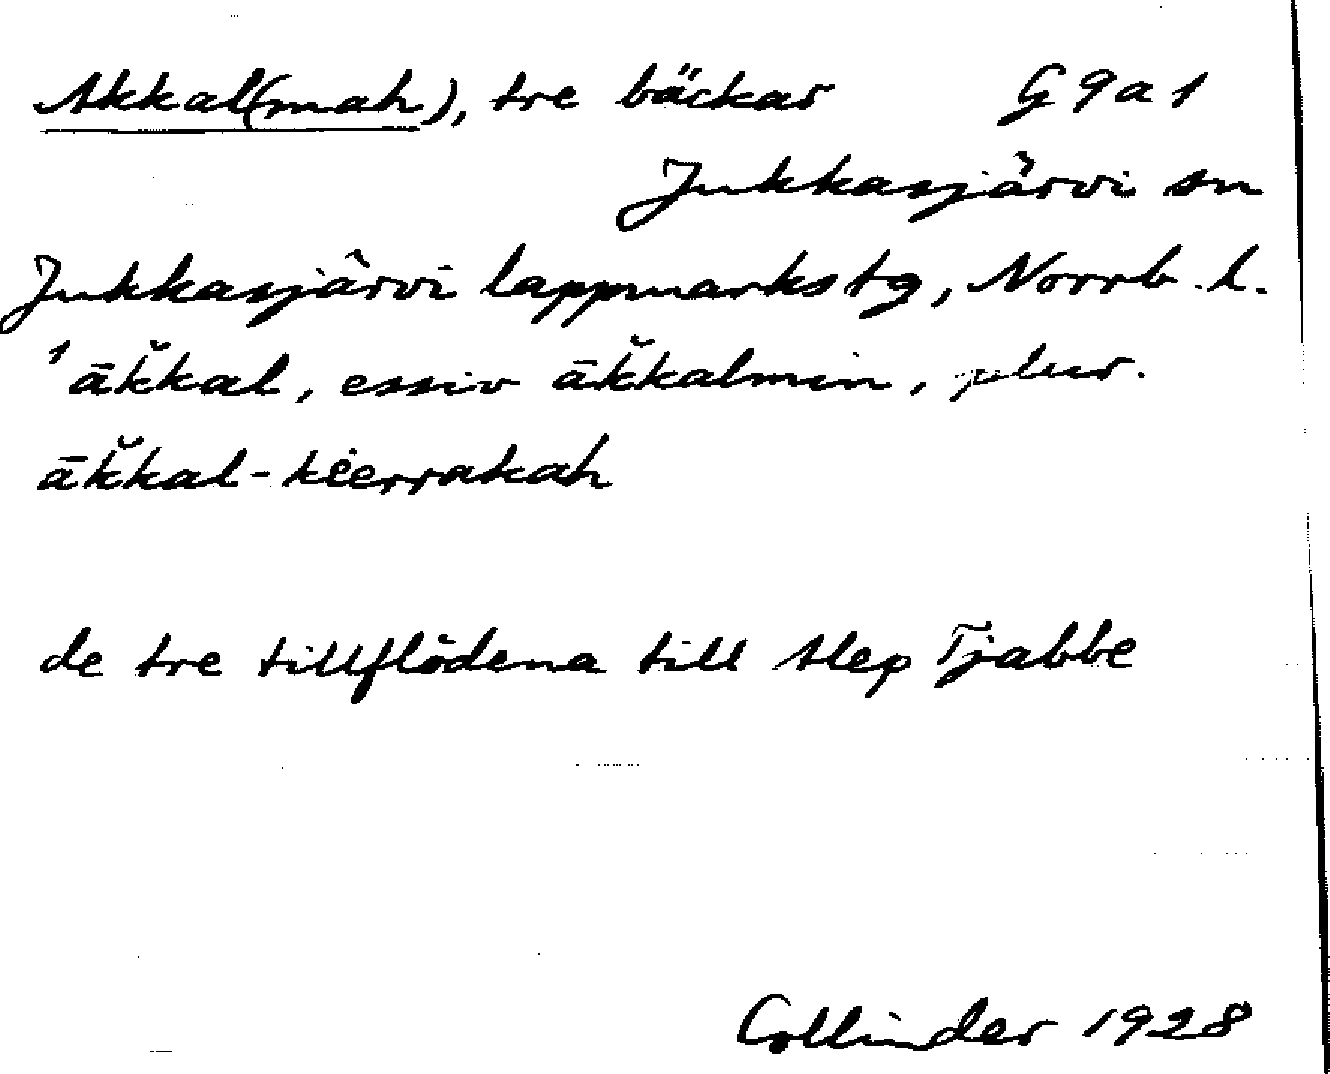 Akkal(mah), tre bäckar G9a1
Jukkasjärvi sn
Jukkasjärvi lappmarkstg, Norrb. l.
¹ āk̆kal, essiv āk̆kalmin, plur.
āk̆kal-kierrakah
de tre tillflödena till Alep Tjabbe
Collinder 1928